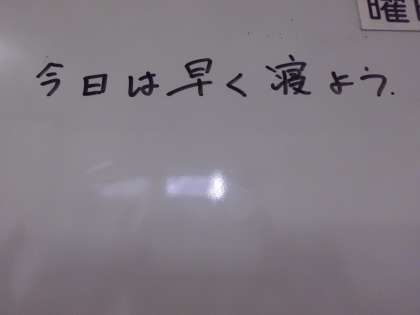 曜
今日は早く寝よう.